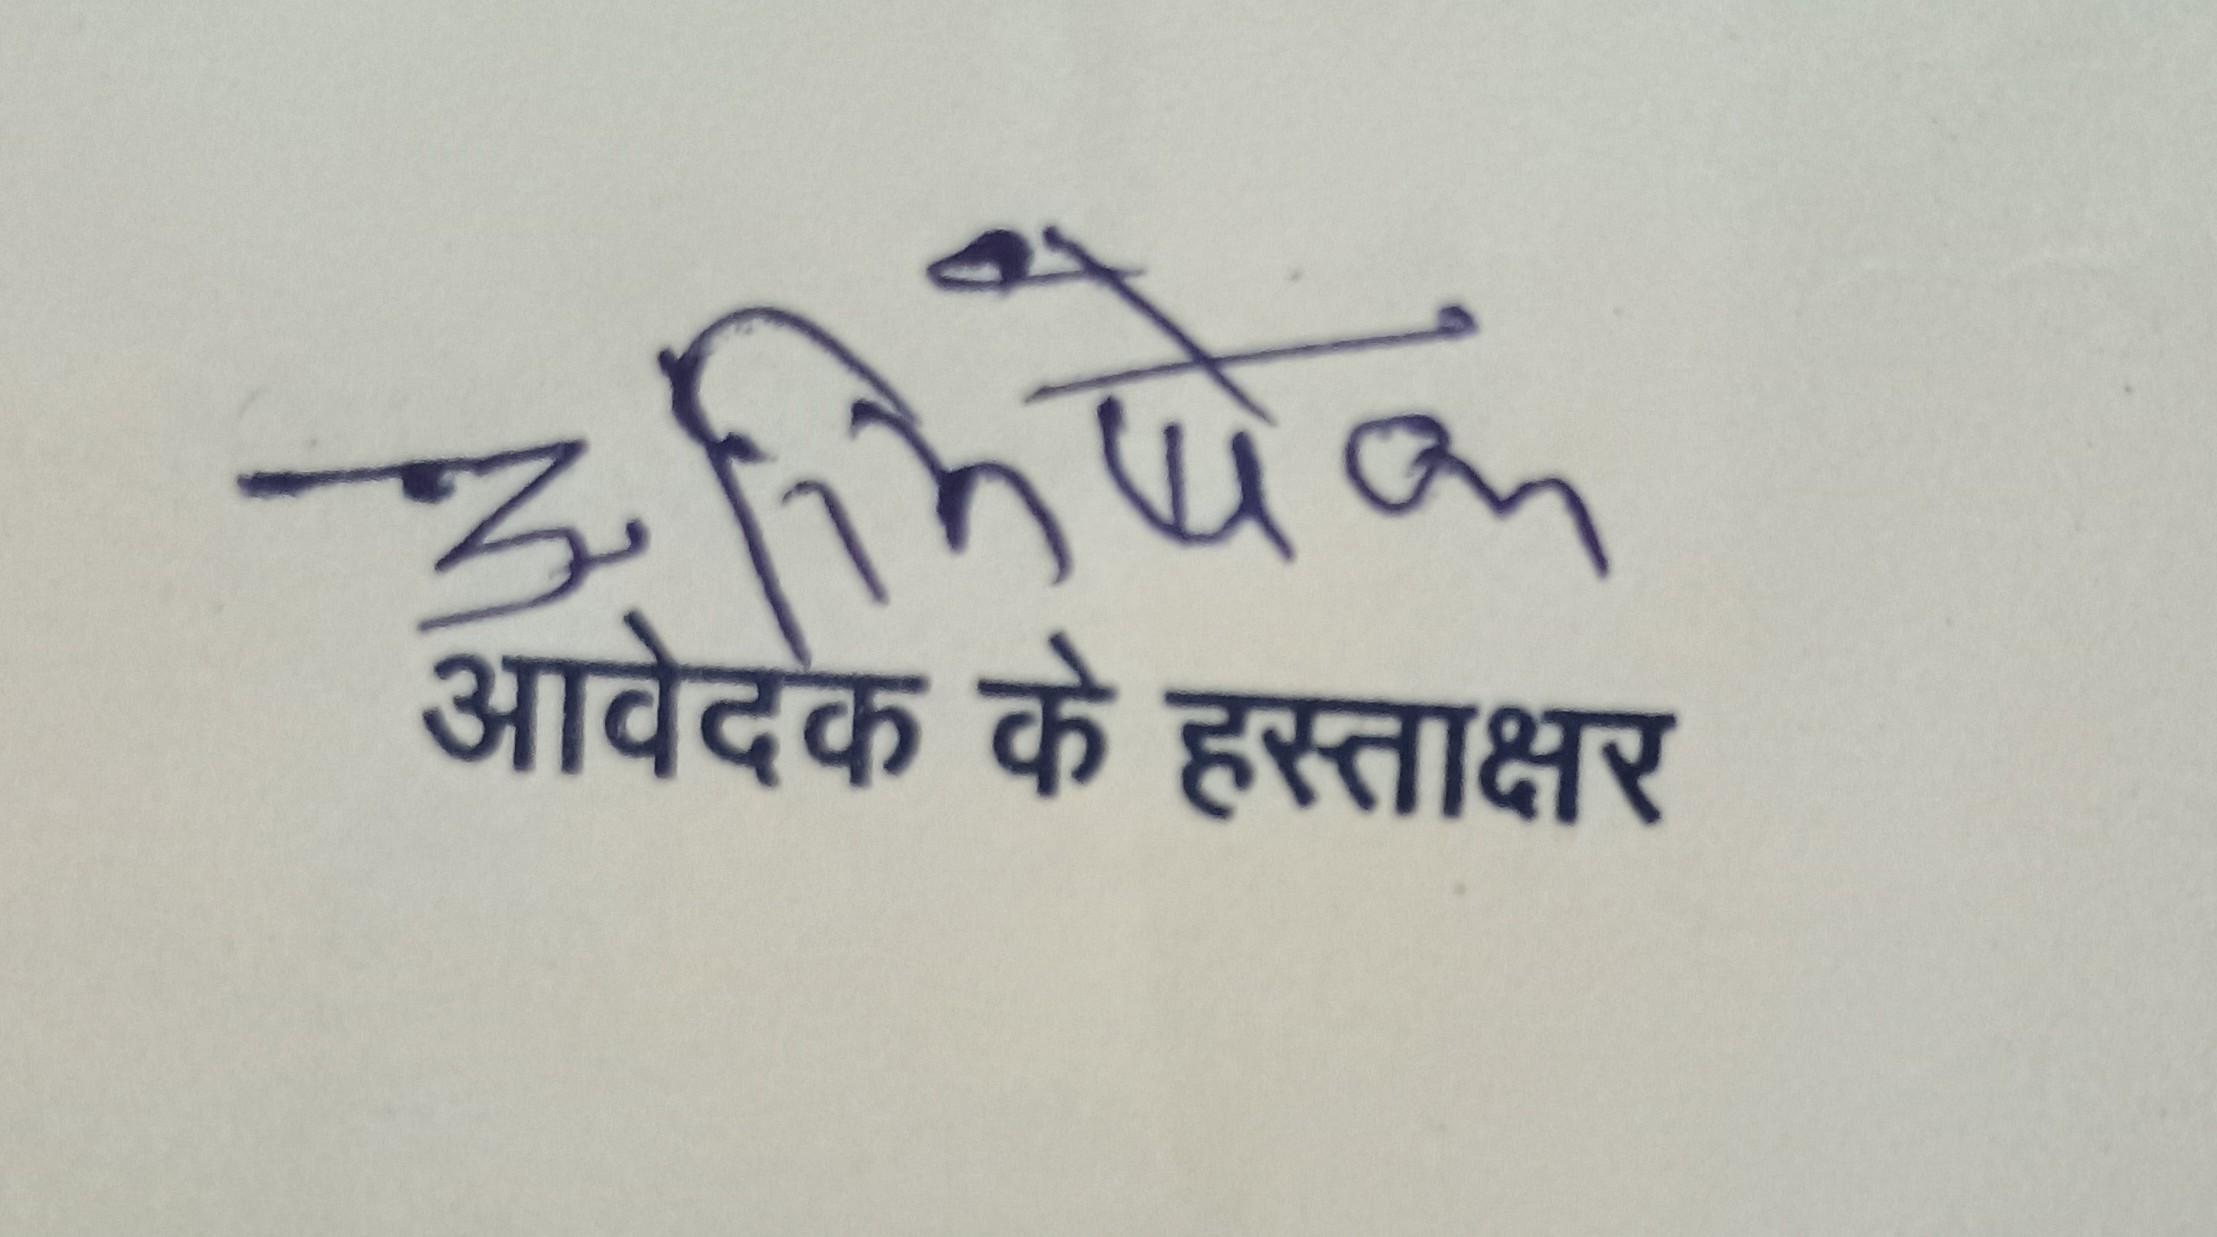 अभिषेक
आवेदक के हस्ताक्षर